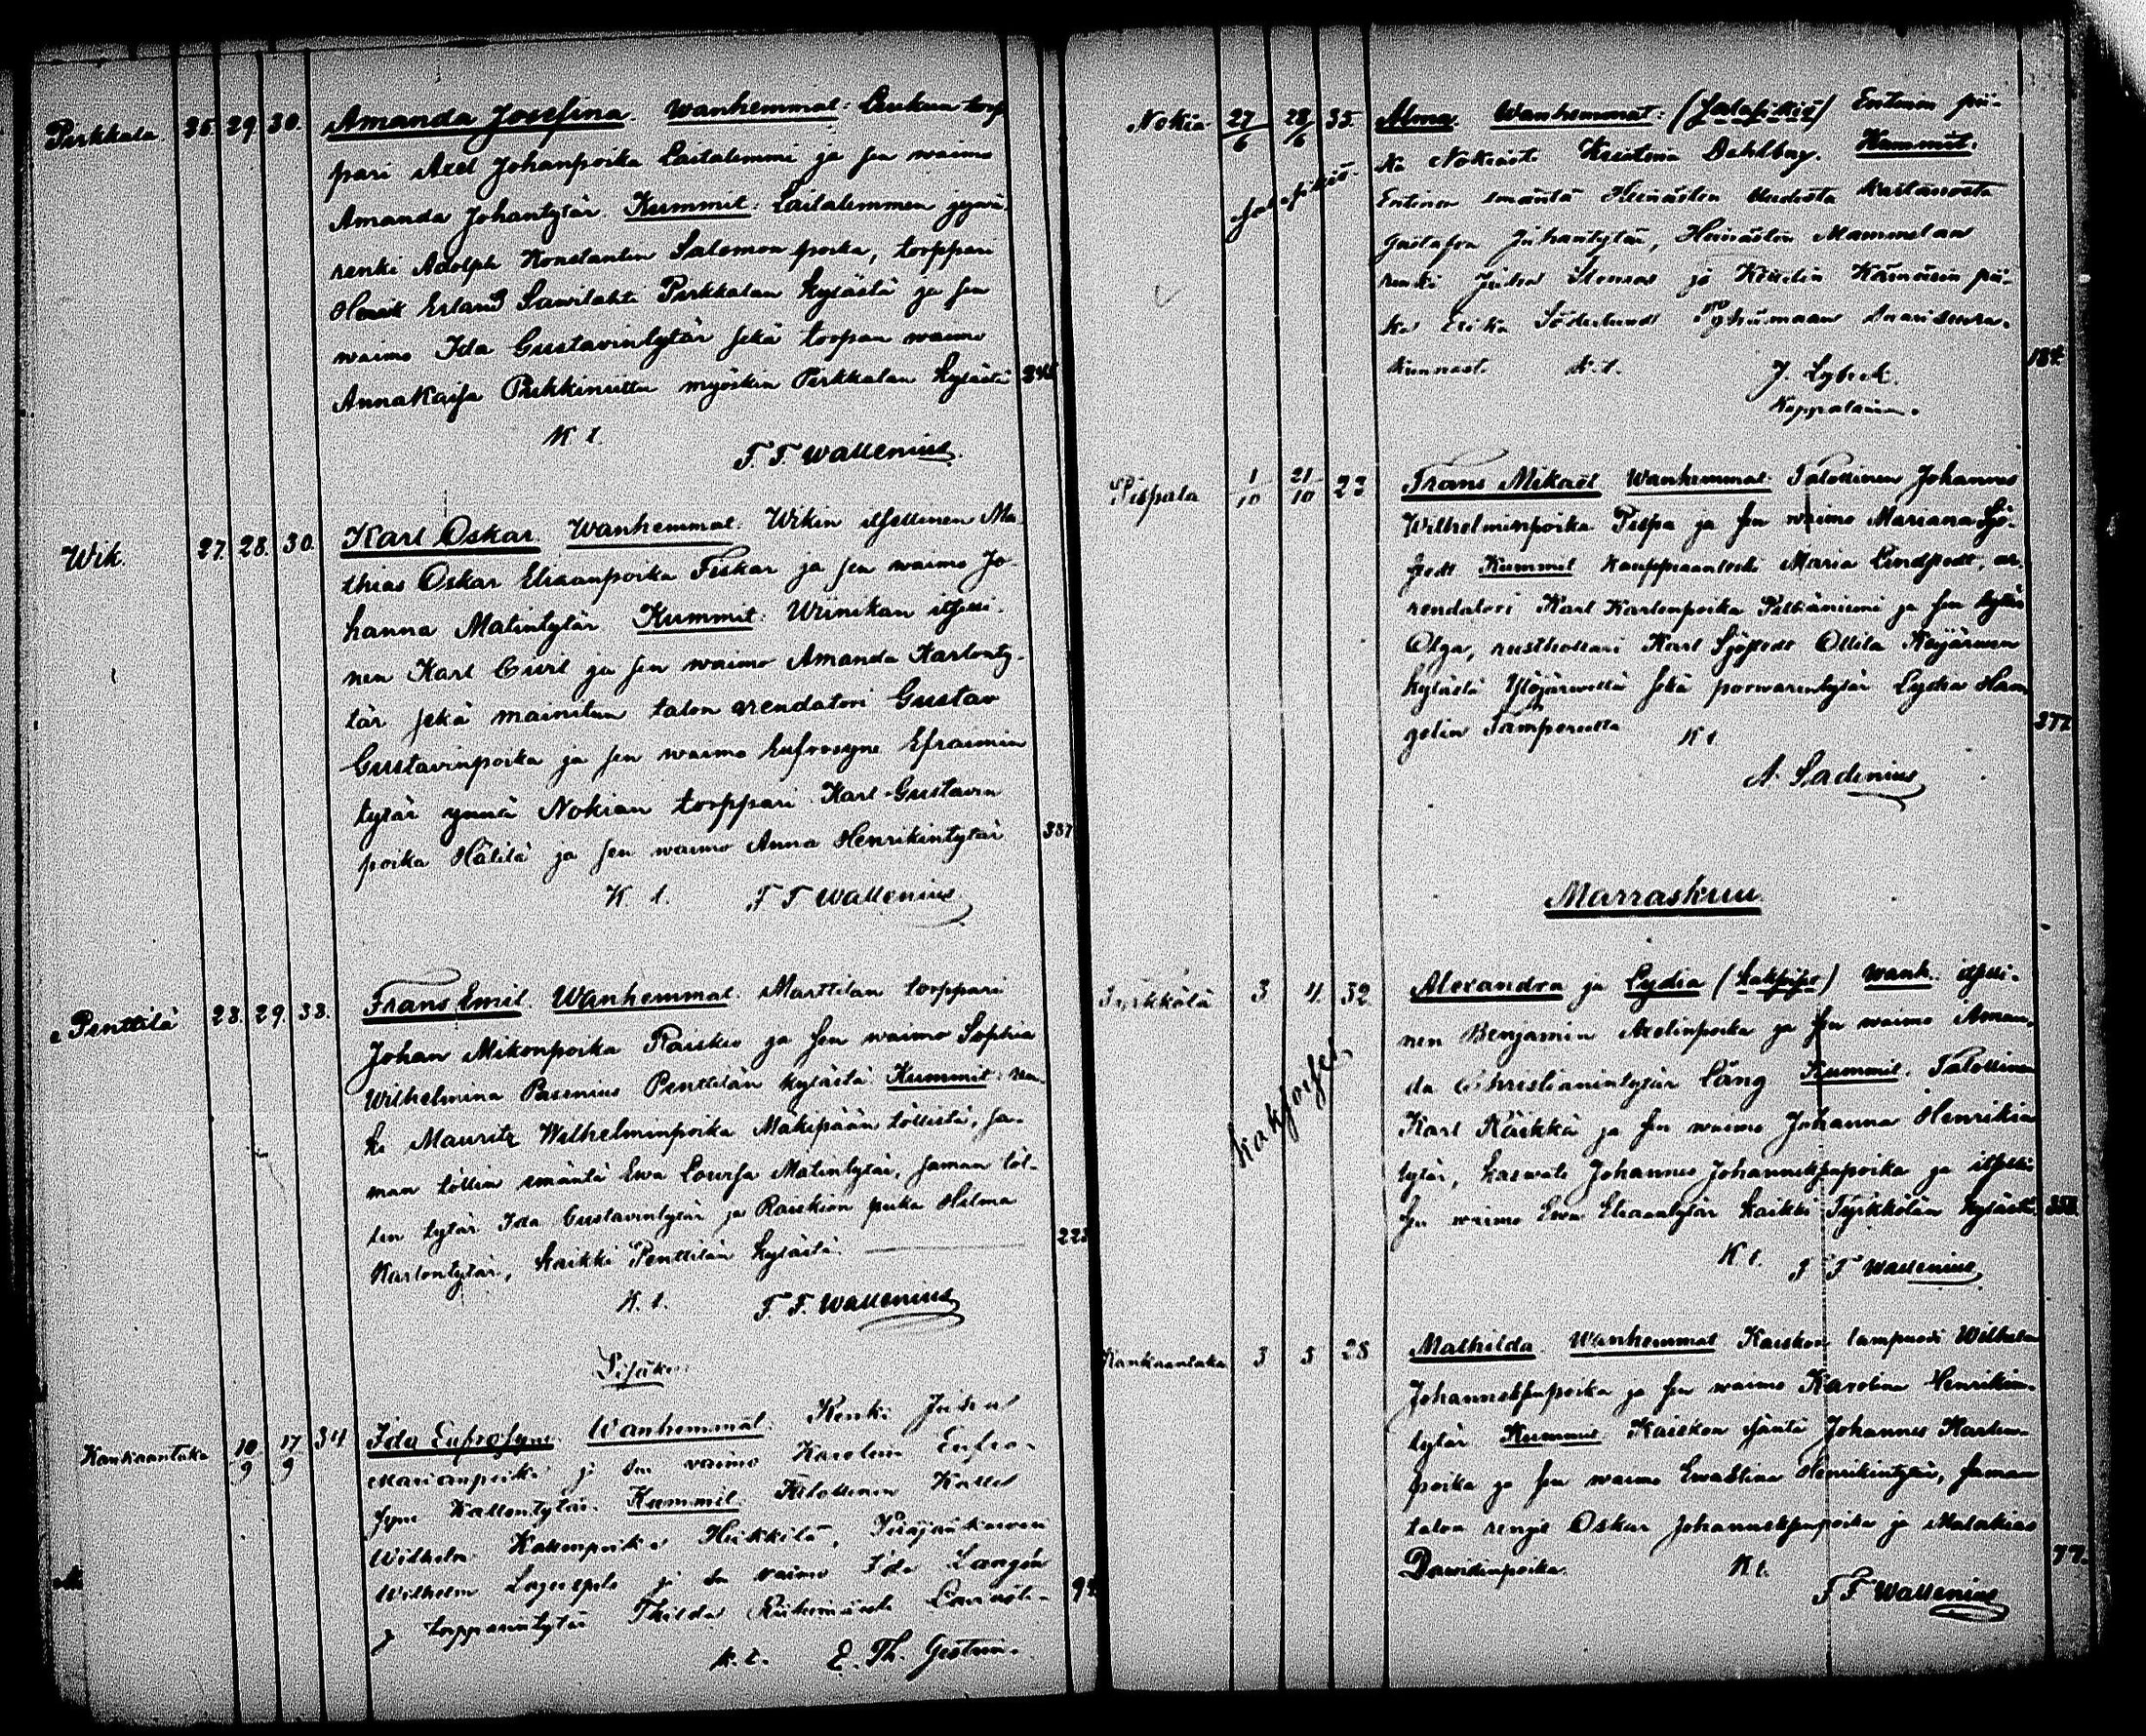 Pirkkala. 25. 29. 30. Amanda Josefina. Wanhemmat: Penkun torp
pari Axel Johanpoika Laitalemmi ja sen waimo
Amanda Johantytär. Kummit: Laitalemmen
renki Adolph Konstantin Salomonpoika, torppari
Henrik Erland Sawilahti Pirkkalan kylästä ja sen
waimo Ida Gustavintytär sekä torpan waimo
AnnaKaisa myöskin Pirkkalan kylästä
K. t.
F. F. Wallenius.
Wik. 27. 28. 30. Karl Oskar. Wanhemmat. Wikin itsellinen Ma-
thias Oskar Eliaanpoika Fiskar ja sen waimo Jo-
hanna Matintytär. Kummit: Wiinikan itselli-
nen Karl ja sen waimo Amanda Karlonty-
tär sekä mainitun talon arendatori Gustav
Gustavinpoika ja sen waimo Eufrosyne Efraimin
tytär ynnä Nokian torppari Karl Gustavin
poika Hälilä ja sen waimo Anna Henrikintytär 337
K. t. F F Wallenius
Penttilä 28. 29. 38. Frans Emil. Wanhemmat. Marttilan torppari
Johan Mikonpoika Raiskio ja sen waimo Sophia
Wilhelmina Pasenius Penttilän kylästä. Kummit: ren-
ki Mauritz Wilhelminpoika Mäkipään töllistä, sa-
man töllin emäntä Ewa Lowisa Matintytär, saman töl-
lin tytär Ida Gustavintytär ja Raiskion piika Hilma
Karlontytär, kaikki Penttilän kylästä. 223
K. t. F. F. Wallenius
Lisäke:
Kankaantaka 10/9 17/9 34 Ida Eufrosyne. Wanhemmat: Renki Juha
ja sen vaimo Karolina Eufro-
syne Kallentytär. Kummit: Talollinen Kalle
Wilhelm Kallenpoika Heikkilä,
Wilhelm ja sen vaimo Ida
ja torpparintytär Thilda
k. t. E. Th. Gestrin.
Nokia 27/6 28/6 35. Alma. Wanhemmat: (salasikiö) Entinen pii-
salasikiö
ka Nokiasta Kristina Dahlberg. Kummit:
Entinen emäntä Uudesta Kartanosta
Gustafva Juhantytär, Mammelan
renki Juha Stenros ja pii-
ka Erika Söderlund Pyhämaan
kunnasta k. t. J. Lybeck.
Kappalainen.
184.
Pispala 1/10 21/10 23 Frans Mikael Wanhemmat: Talollinen Johannes
Wilhelminpoika Pispa ja sen waimo Mariana Sjö-
stedt Kummit Kauppiaanleski Maria Lindstedt, ar-
rendatori Karl Karlonpoika Peltäniemi ja sen tytär
Olga, rusthollari Karl Sjöstedt Ollila Keijärven
kylästä Ylöjärveltä sekä porwarintytär Lydia Han
gelin Tampereelta 377
K t
A. Ladenius
Marraskuu
Tyrkkölä 3 4. 32. Alexandra ja Lydia (kaksoiset) wanh. itselli-
kaksoiset
nen Benjamin Axelinpoika ja sen waimo Aman-
da Christianintytär Lång. Kummit. Talollinen
Karl Räikkä ja sen waimo Johanna Henrikin
tytär, kaswati Johannes Johanneksenpoika ja itsell:
sen waimo Ewa Eliaantytär kaikki Tyrkkölän kylästä. 358
K t. F F Wallenius
Kankaantaka 3 5 28 Mathilda. Wanhemmat Kaiskon lampuodi Wilhelm
Johanneksenpoika ja sen waimo Karolina Henrikin-
tytär Kummit Kaiskon isäntä Johannes Karlon-
poika ja sen waimo Ewastina Henrikintytär, saman
talon rengit Oskar Johanneksenpoika ja Malakias
Dawidinpoika. K t. 77.
F F Wallenius